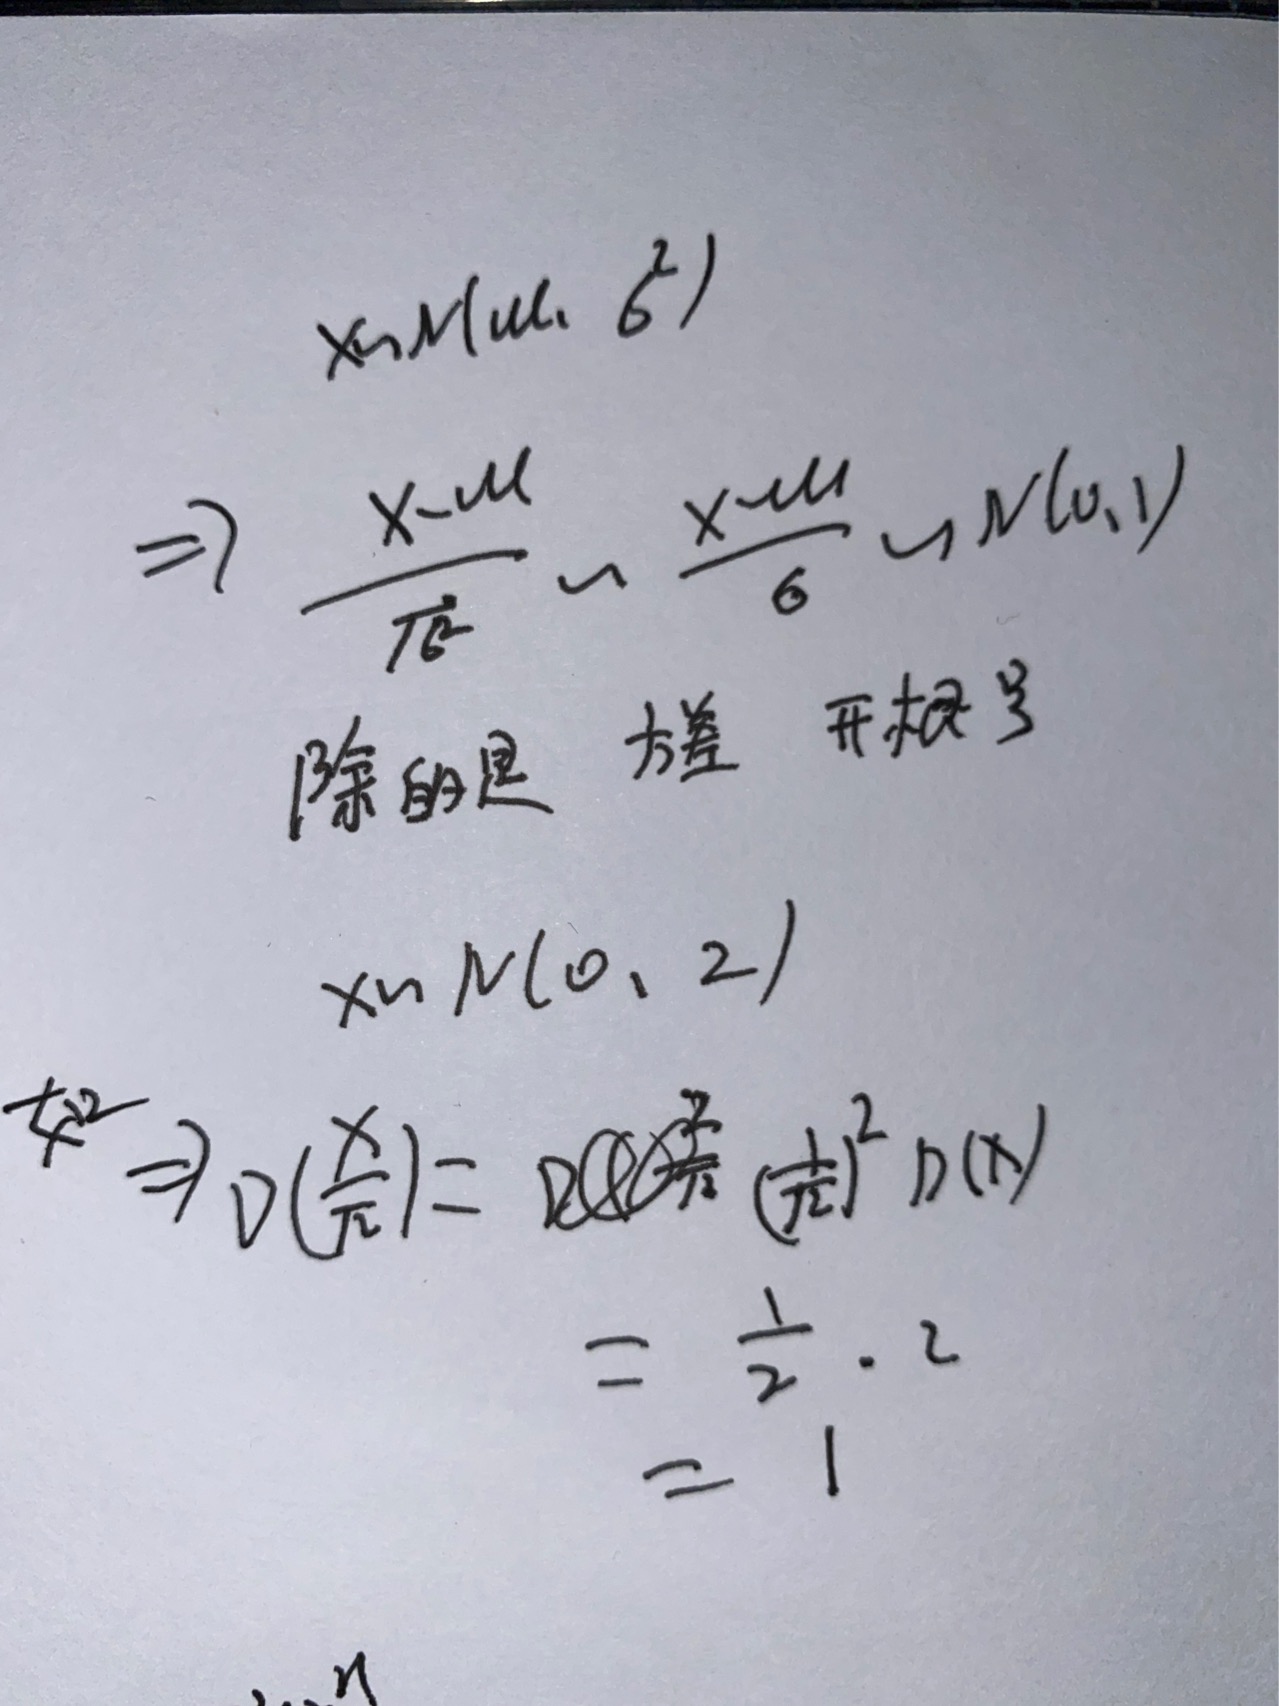 X~N(μ, σ²)
⇒ (X-μ)/√σ² ~ (X-μ)/σ ~ N(0,1)
除的是 方差 开根号
X~N(0, 2)
⇒ D(X/√2) = (1/√2)² D(X)
= 1/2 · 2
= 1